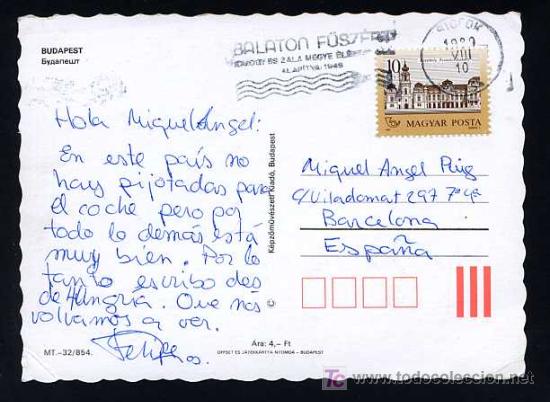 BUDAPEST
Будапешт
BALATON FŰSZÉRT
SOMOGY ÉS ZALA MEGYE
ALAPÍTVA 1949
SIÓFOK
VIII
10
10
MAGYAR POSTA
Hola MiguelAngel:
En este país no
hay pijotadas para
el coche pero por
todo lo demás está
muy bien. Por lo
tanto escribo des
de Hungría. Que nos
volvamos a ver.
Felipe
Képzőművészeti Kiadó, Budapest
Miguel Angel Puig
c/Viladomat 297 7º 4ª
Barcelona
España
MT.-32/854.
Ára: 4,- Ft
OFFSET ÉS JÁTÉKKÁRTYA NYOMDA - BUDAPEST
todocoleccion
www.todocoleccion.net